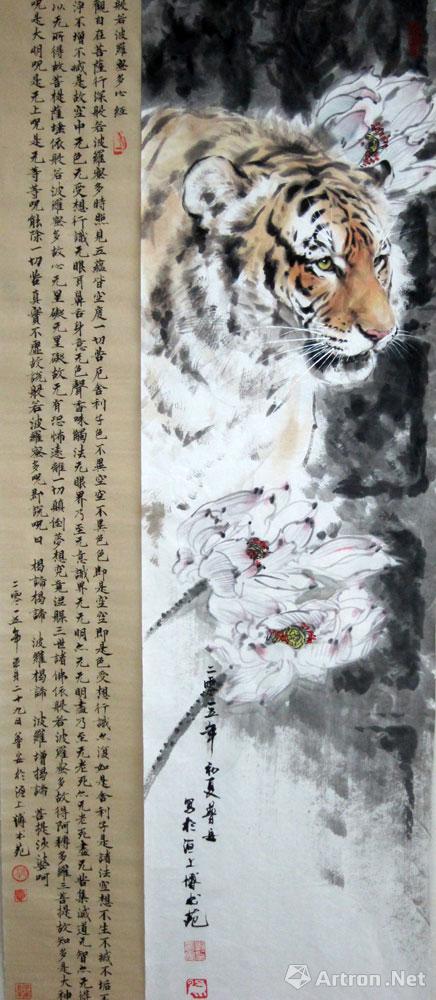 般若波羅蜜多心經
觀自在菩薩行深般若波羅蜜多時照見五蘊皆空度一切苦厄舍利子色不異空空不異色色即是空空即是色受想行識亦復如是舍利子是諸法空想不生不滅不垢不
淨不增不減是故空中无色无受想行識无眼耳鼻舌身意无色聲香味觸法无眼界乃至无意識界无无明亦无无明盡乃至无老死亦无老死盡无苦集滅道无智亦无得
以无所得故菩提薩埵依般若波羅蜜多故心无罣礙无罣礙故无有恐怖遠離一切顛倒夢想究竟涅槃三世諸佛依般若波羅蜜多故得阿耨多羅三菩提故知多是大神
呪是大明呪是无上呪是无等等呪能除一切苦真實不虛故說般若波羅蜜多呪即說呪曰 揭諦揭諦 波羅揭諦 波羅增揭諦 菩提涉婆呵
二零一五年五月二十九日 於海上博 苑
二零一五年初夏
写於海上博 苑
Artron.Net